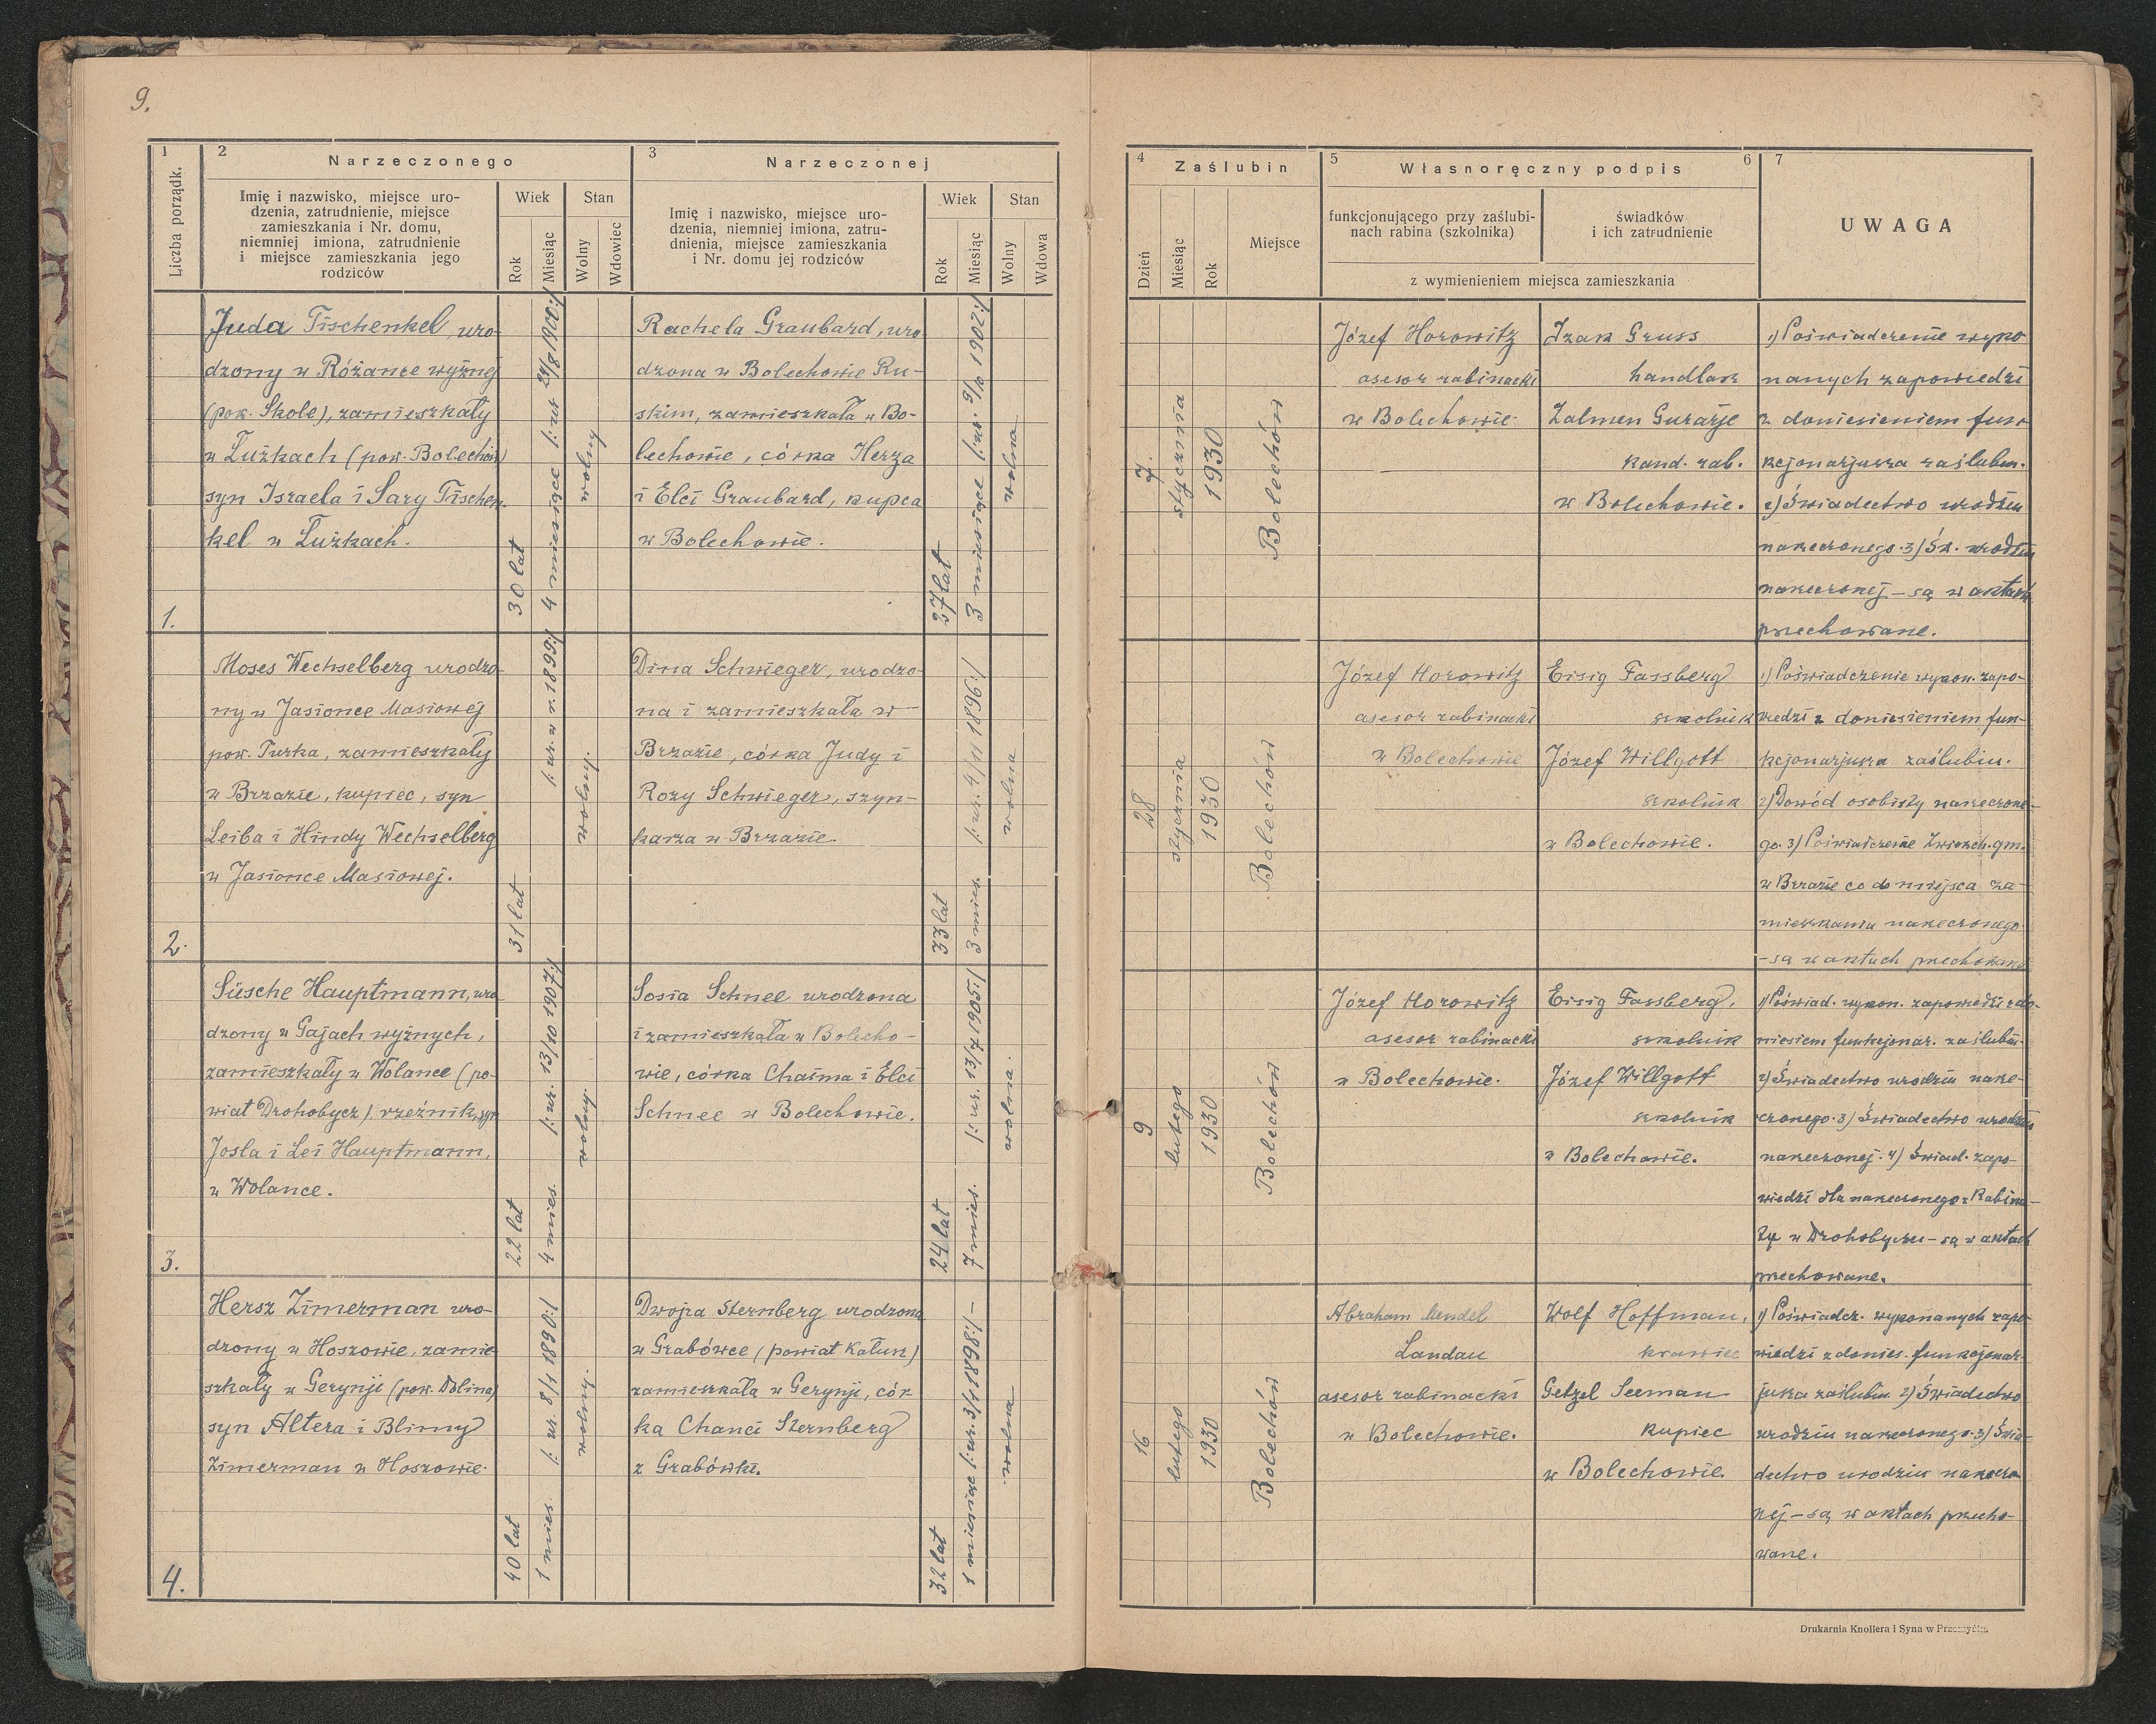 9.
1
2
Narzeczonego
3
Narzeczonej
Liczba porządk.
Imię i nazwisko, miejsce uro-
dzenia, zatrudnienie, miejsce
zamieszkania i Nr. domu,
niemniej imiona, zatrudnienie
i miejsce zamieszkania jego
rodziców
Wiek
Stan
Rok
Miesiąc
Wolny
Wdowiec
Imię i nazwisko, miejsce uro-
dzenia, niemniej imiona, zatru-
dnienia, miejsce zamieszkania
i Nr. domu jej rodziców
Wiek
Stan
Rok
Miesiąc
Wolny
Wdowa
4
Zaślubin
5
Własnoręczny podpis
6
7
Dzień
Miesiąc
Rok
Miejsce
funkcjonującego przy zaślubi-
nach rabina (szkolnika)
świadków
i ich zatrudnienie
z wymienieniem miejsca zamieszkania
UWAGA
1.
Juda Tischenkel, uro-
dzony w Różance wyżnej
(pow. Skole), zamieszkały
w Łużkach (pow. Bolechów)
syn Israela i Sary Tischen-
kel w Łużkach.
30 lat
4 miesiące /: ur. 24/8 1900:/
wolny
Rachela Graubard, uro
dzona w Bolechowie Ru-
skim, zamieszkała w Bo-
lechowie, córka Herza
i Elci Graubard, kupca
w Bolechowie.
27 lat
3 miesiące /: ur. 9/10 1902:/
wolna
7.
stycznia
1930
Bolechów
Józef Horowitz
asesor rabinacki
w Bolechowie.
Izak Gruss
handlarz
Zalmen Gurarje
kand. rab.
w Bolechowie.
1) Poświadczenie wyko
nanych zapowiedzi
z doniesieniem fun-
kcjonarjusza zaślubin.
2) Świadectwo urodzin
narzeczonego. 3) Św. urodzin
narzeczonej – są w aktach
przechowane.
2.
Moses Wechselberg urodzo-
ny w Jasionce Masiowej
pow. Turka, zamieszkały
w Brzazie, kupiec, syn
Leiba i Hindy Wechselberg
w Jasionce Masiowej.
31 lat
/: ur. w r. 1899:/
wolny.
Dina Schwieger, urodzo-
na i zamieszkała w
Brzazie, córka Judy i
Rozy Schwieger, szyn-
karza w Brzazie.
33 lat
3 mies. /: ur. 4/11 1896:/
wolna
28
stycznia
1930
Bolechów
Józef Horowitz
asesor rabinacki
w Bolechowie
Eisig Fassberg
szkolnik
Józef Willgott
szkolnik
w Bolechowie.
1) Poświadczenie wykon. zapo-
wiedzi z doniesieniem fun-
kcjonarjusza zaślubin.
2) Dowód osobisty narzeczone-
go. 3) Poświadczenie Zwierzch. gm.
w Brzazie co do miejsca za-
mieszkania narzeczonego
– są w aktach przechowane
3.
Süsche Hauptmann, uro-
dzony w Gajach wyżnych,
zamieszkały w Wolance (po-
wiat Drohobycz), rzeźnik, syn
Josla i Lei Hauptmann,
w Wolance.
22 lat
4 mies. /: ur. 13/10 1907:/
wolny.
Sosia Schnee urodzona
i zamieszkała w Bolecho-
wie, córka Chaima i Elci
Schnee w Bolechowie.
24 lat
7 mies. /: ur. 13/7 1905:/
wolna.
9
lutego
1930
Bolechów
Józef Horowitz
asesor rabinacki
w Bolechowie.
Eisig Fassberg,
szkolnik
Józef Willgott
szkolnik
w Bolechowie.
1) Poświad. wykon. zapowiedzi z do-
niesiem funkcjonar. zaślubin.
2) Świadectwo urodzin narze-
czonego. 3) Świadectwo urodzin
narzeczonej. 4) Świad. zapo-
wiedzi dla narzeczonego z Rabina-
tu w Drohobyczu – są w aktach
przechowane.
4.
Hersz Zimerman uro-
dzony w Hoszowie, zamie-
szkały w Gerynji (pow. Dolina)
syn Altera i Blimy
Zimerman w Hoszowie.
40 lat
1 mies. /: ur. 8/1 1890:/
wolny.
Dwojra Sternberg urodzona
w Grabówce (powiat Kałusz)
zamieszkała w Gerynji, cór
ka Chanci Sternberg
z Grabówki.
32 lat
1 miesiąc /: ur. 3/1 1898:/ –
wolna
16
lutego
1930
Bolechów
Abraham Mendel
Landau
asesor rabinacki
w Bolechowie.
Wolf Hoffman,
krawiec
Getzel Seeman
kupiec
w Bolechowie.
1) Poświadcz. wykonanych zapo-
wiedzi z donies. funkcjonar-
jusza zaślubin. 2) Świadectwo
urodzin narzeczonego. 3) Świa-
dectwo urodzin narzeczo
nej – są w aktach przecho-
wane.
Drukarnia Knollera i Syna w Przemyślu.